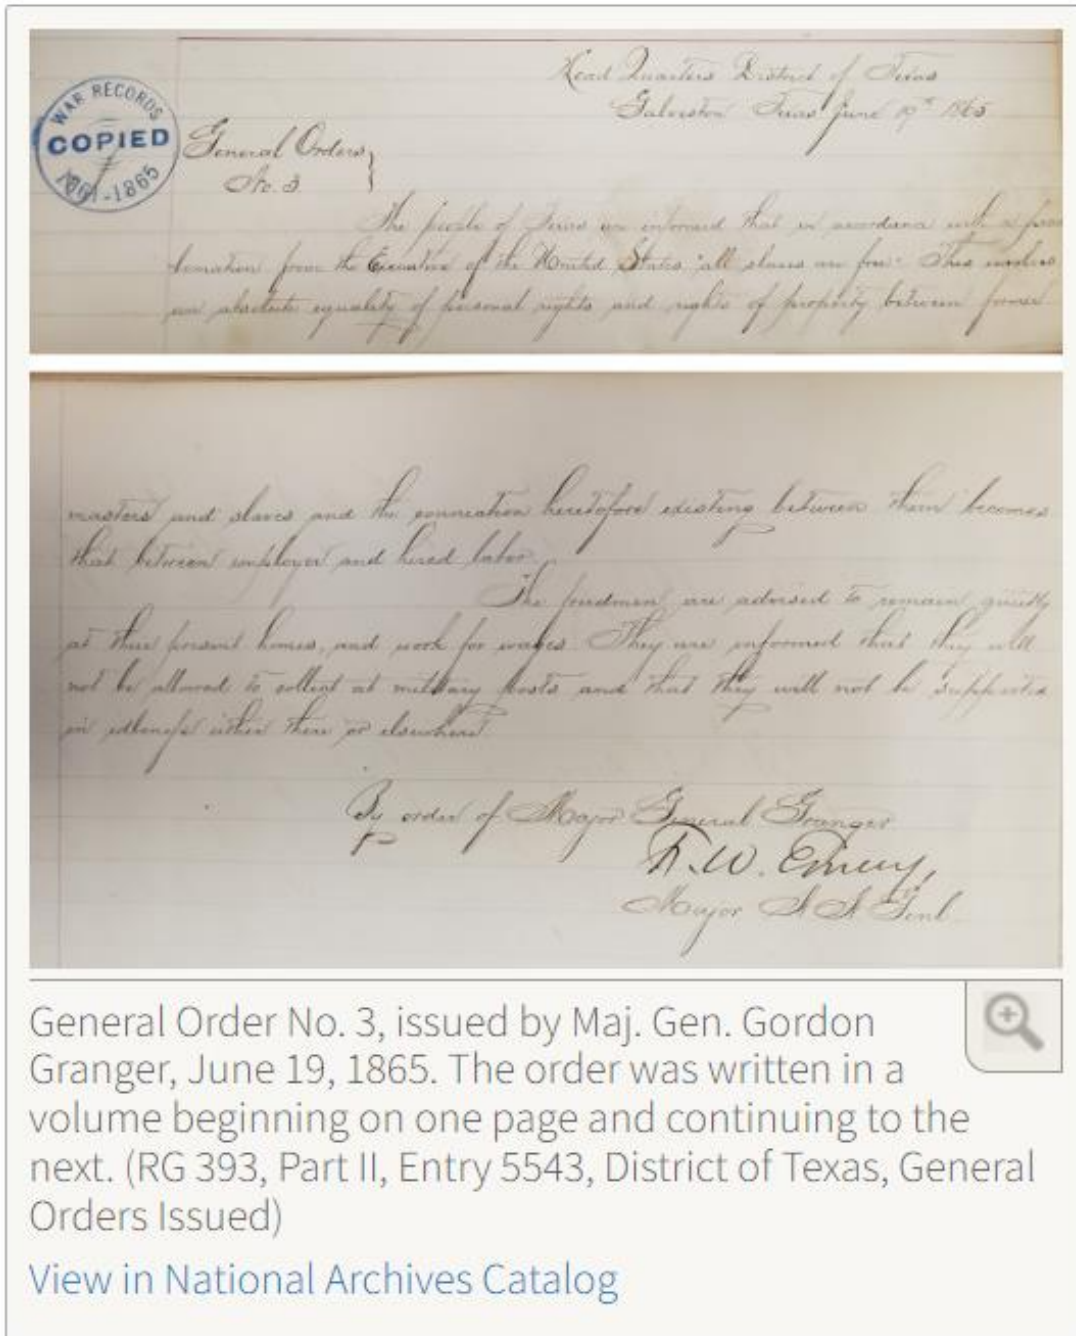 WAR RECORDS
COPIED
1861-1865
Head Quarters District of Texas
Galveston Texas June 19th 1865
General Orders
No. 3
The people of Texas are informed that in accordance with a proc
lamation from the Executive of the United States "all slaves are free." This involves
an absolute equality of personal rights and rights of property between former
masters and slaves and the connection heretofore existing between them becomes
that between employer and hired labor.
The freedmen are advised to remain quietly
at their present homes, and work for wages. They are informed that they will
not be allowed to collect at military posts and that they will not be supported
in idleness either there or elsewhere
By order of Major General Granger
F.W. Emery,
Major A A Genl.
General Order No. 3, issued by Maj. Gen. Gordon
Granger, June 19, 1865. The order was written in a
volume beginning on one page and continuing to the
next. (RG 393, Part II, Entry 5543, District of Texas, General
Orders Issued)
View in National Archives Catalog